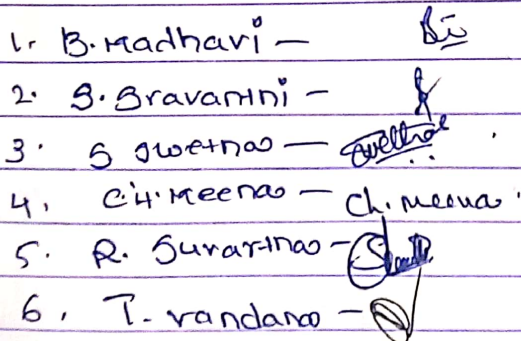 1. B. Madhavi -
2. S. Sravanthi -
3. S Swetha - Swetha
4. CH. Meena - Ch. Meena
5. R. Suvartha -
6. T. Vandana -